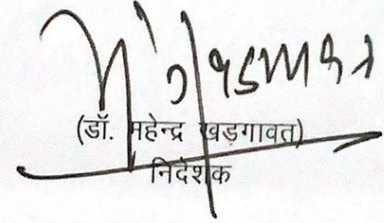 (डॉ. महेन्द्र खड़गावत)
निदेशक